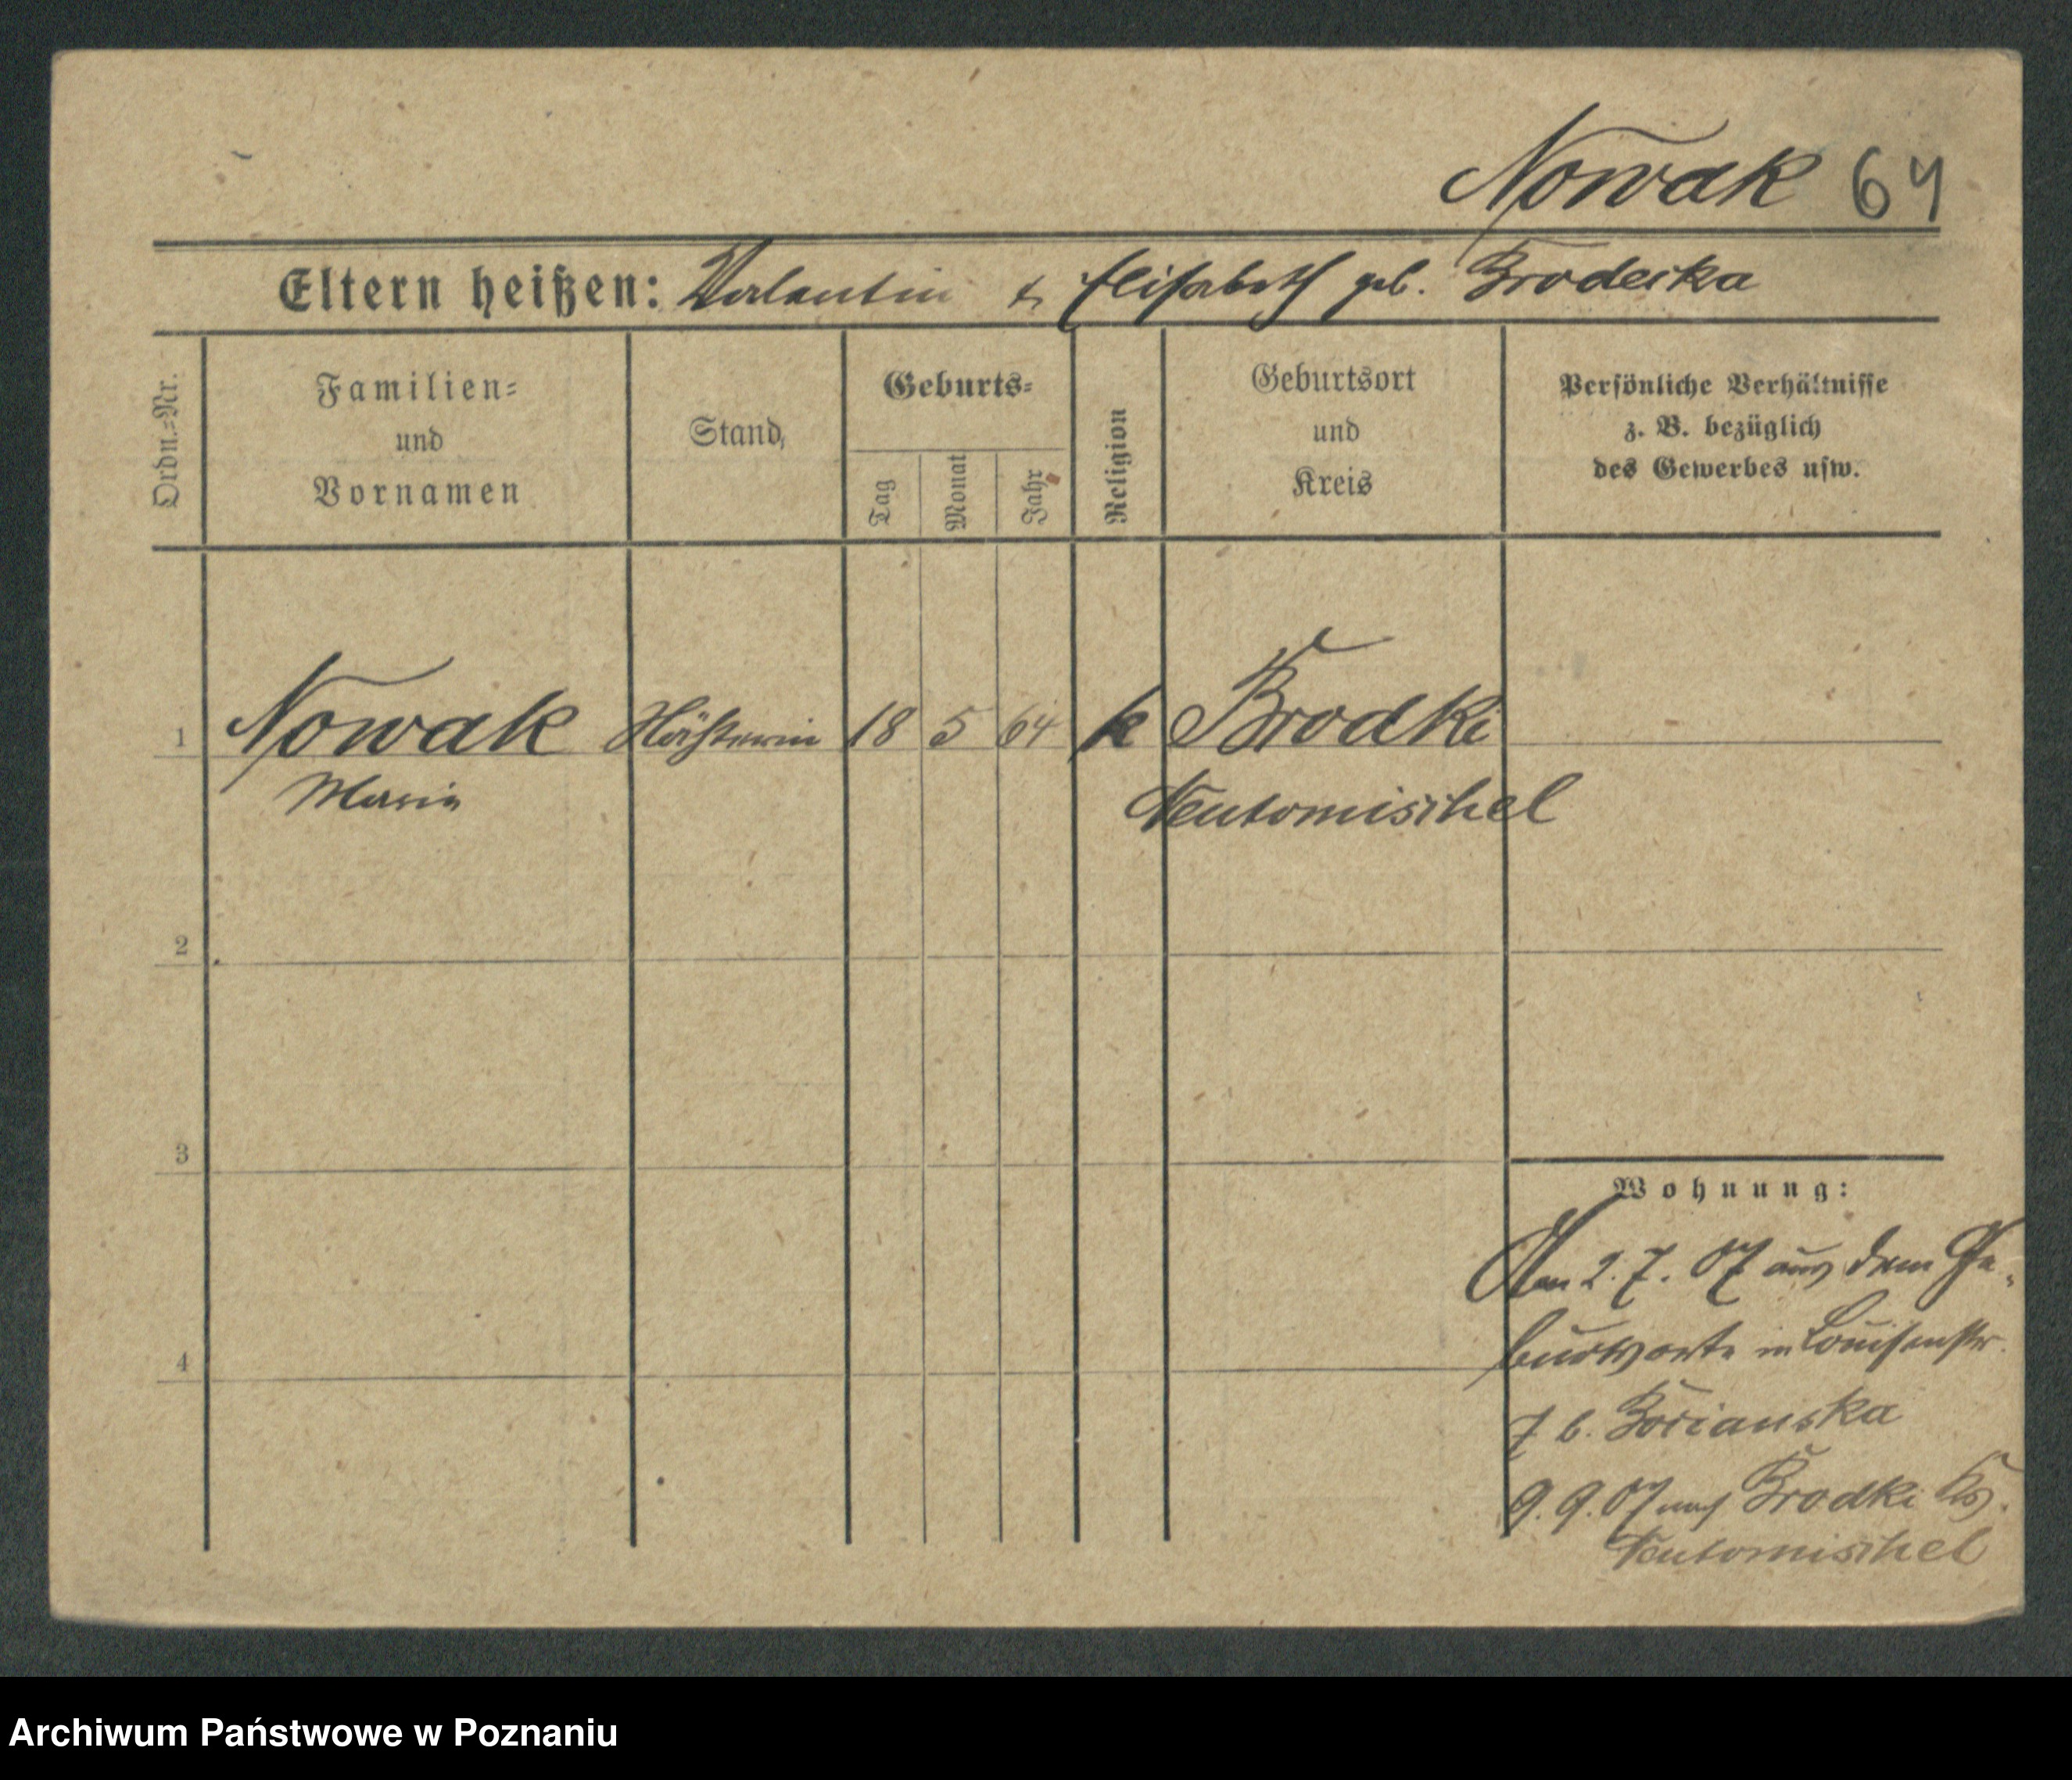 Nowak 64
Eltern heißen: Valentin & Elisabeth geb. Brodecka
Ordn.-Nr.
Familien-
und
Vornamen
Stand,
Geburts-
Tag
Monat
Jahr
Religion
Geburtsort
und
Kreis
Persönliche Verhältnisse
z. B. bezüglich
des Gewerbes usw.
1 Nowak 18 5 64 k Brodki
Maria Neutomischel
2
3
Wohnung:
Am 2. 7. 07 aus dem Ge-
burtsorte in Louisenstr.
4
7 b. Bocianska
9. 9. 07 nach Brodki Krs.
Neutomischel
Archiwum Państwowe w Poznaniu